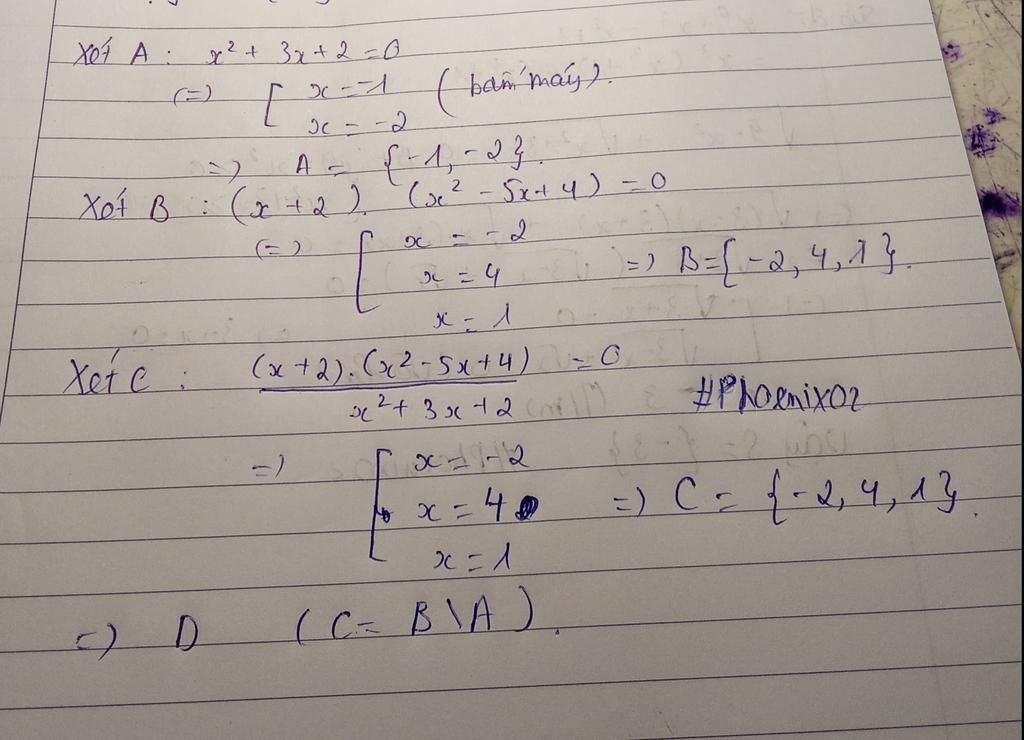 Xét A : x² + 3x + 2 = 0
(=) [ x = -1 (bấm máy).
x = -2
=) A = {-1, -2}.
Xét B : (x + 2). (x² - 5x + 4) = 0
(=) [ x = -2
x = 4 =) B = {-2, 4, 1}.
x = 1
Xét C : (x + 2).(x² - 5x + 4) = 0
x² + 3x + 2
#Phoenix02
=) [ x = -2
x = 4 =) C = {-2, 4, 1}.
x = 1
=) D (C = B \ A).